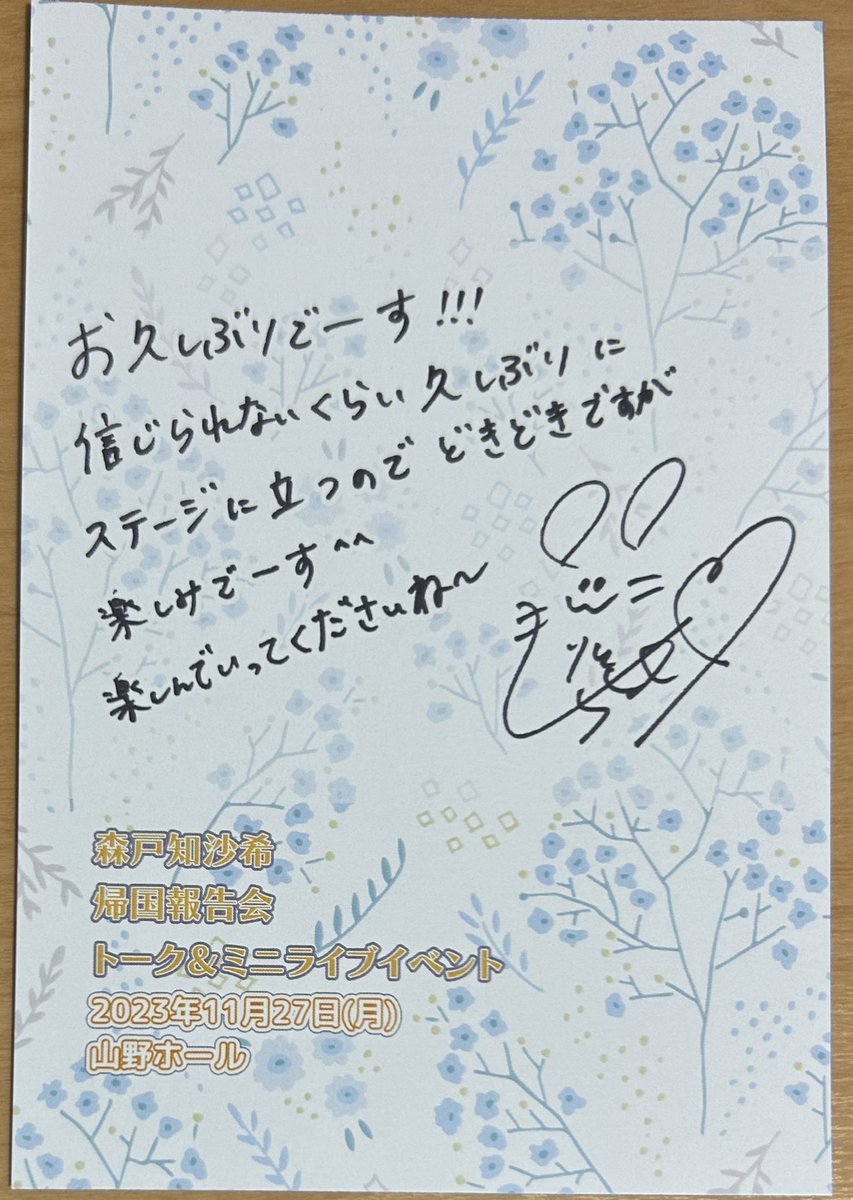 お久しぶりでーす!!!
信じられないくらい久しぶりに
ステージに立つのでどきどきですが
楽しみでーす^^
楽しんでいってくださいね〜
森戸知沙希
帰国報告会
トーク&ミニライブイベント
2023年11月27日(月)
山野ホール